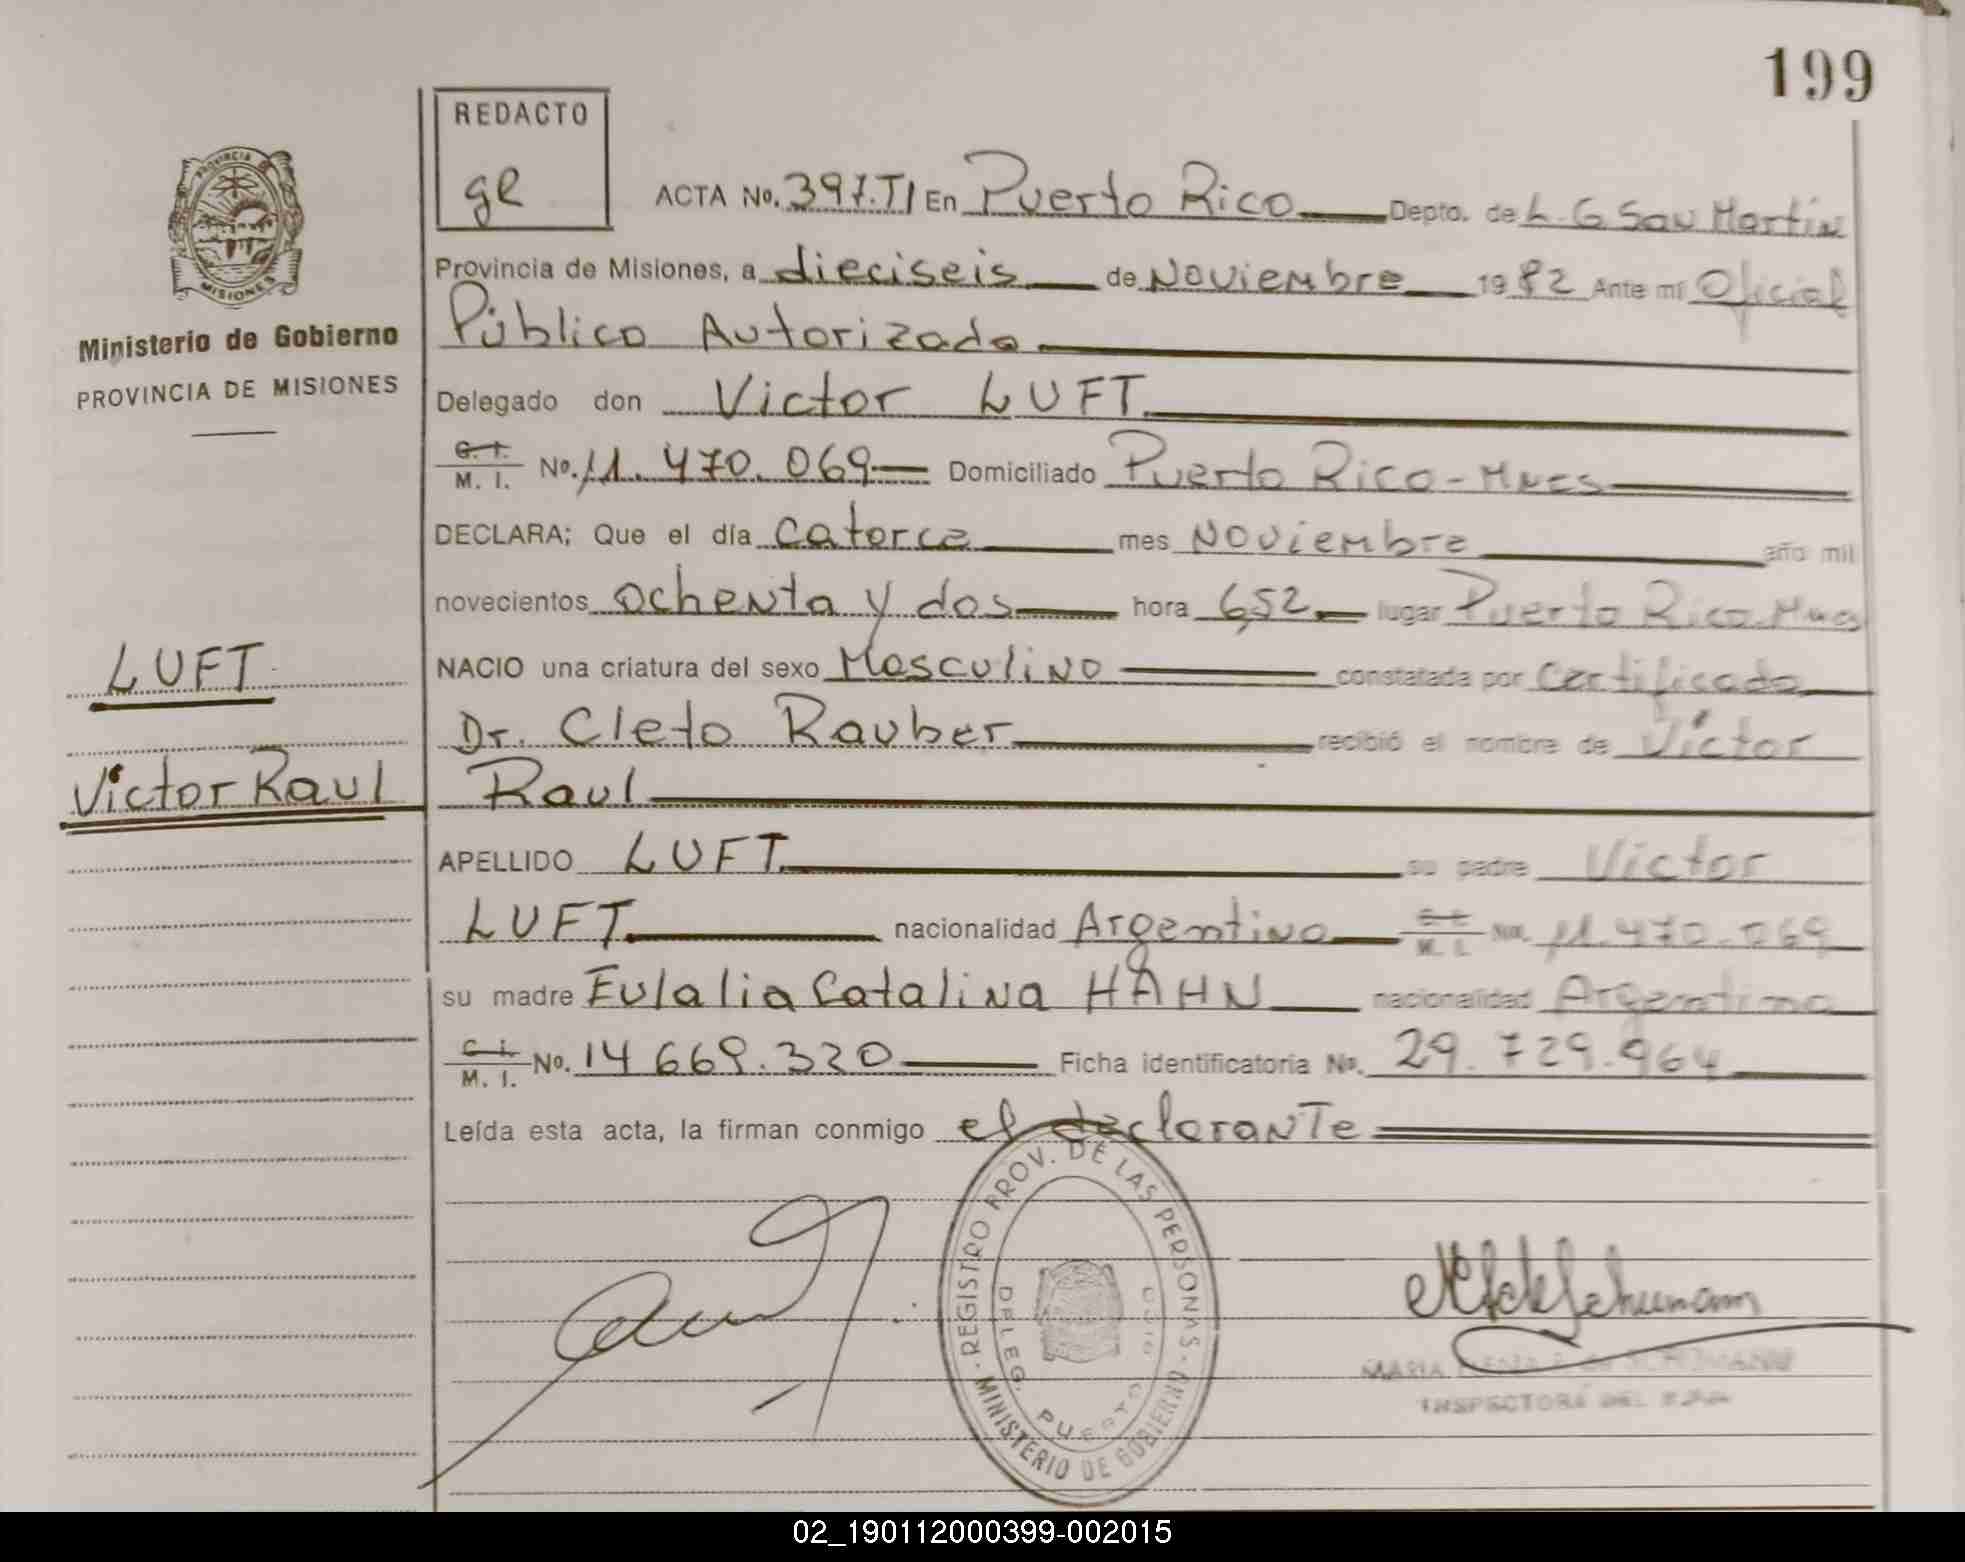 199
REDACTO
ge
PROVINCIA DE
MISIONES
Ministerio de Gobierno
PROVINCIA DE MISIONES
ACTA No. 397.TI En Puerto Rico Depto. de L. G San Martin
Provincia de Misiones, a dieciseis de Noviembre 1982 Ante mí Oficial
Público Autorizado
Delegado don Victor LUFT
C. I. M. I. No. 11.470.069 Domiciliado Puerto Rico-Mnes
DECLARA; Que el día catorce mes Noviembre año mil
novecientos ochenta y dos hora 6,52 lugar Puerto Rico-Mnes
LUFT
NACIO una criatura del sexo Masculino constatada por Certificado
Dr. Cleto Rauber recibió el nombre de Victor
Victor Raul
Raul
APELLIDO LUFT su padre Victor
LUFT nacionalidad Argentino C. I. M. I. No. 11.470.069
su madre Eulalia Catalina HAHN nacionalidad Argentina
C. I. M. I. No. 14 669.320 Ficha identificatoria No. 29.729.964
Leída esta acta, la firman conmigo el declarante
REGISTRO PROV. DE LAS PERSONAS - MINISTERIO DE GOBIERNO
DELEG. PUERTO RICO
MARIA SCHUMANN
INSPECTORA DEL
02_190112000399-002015